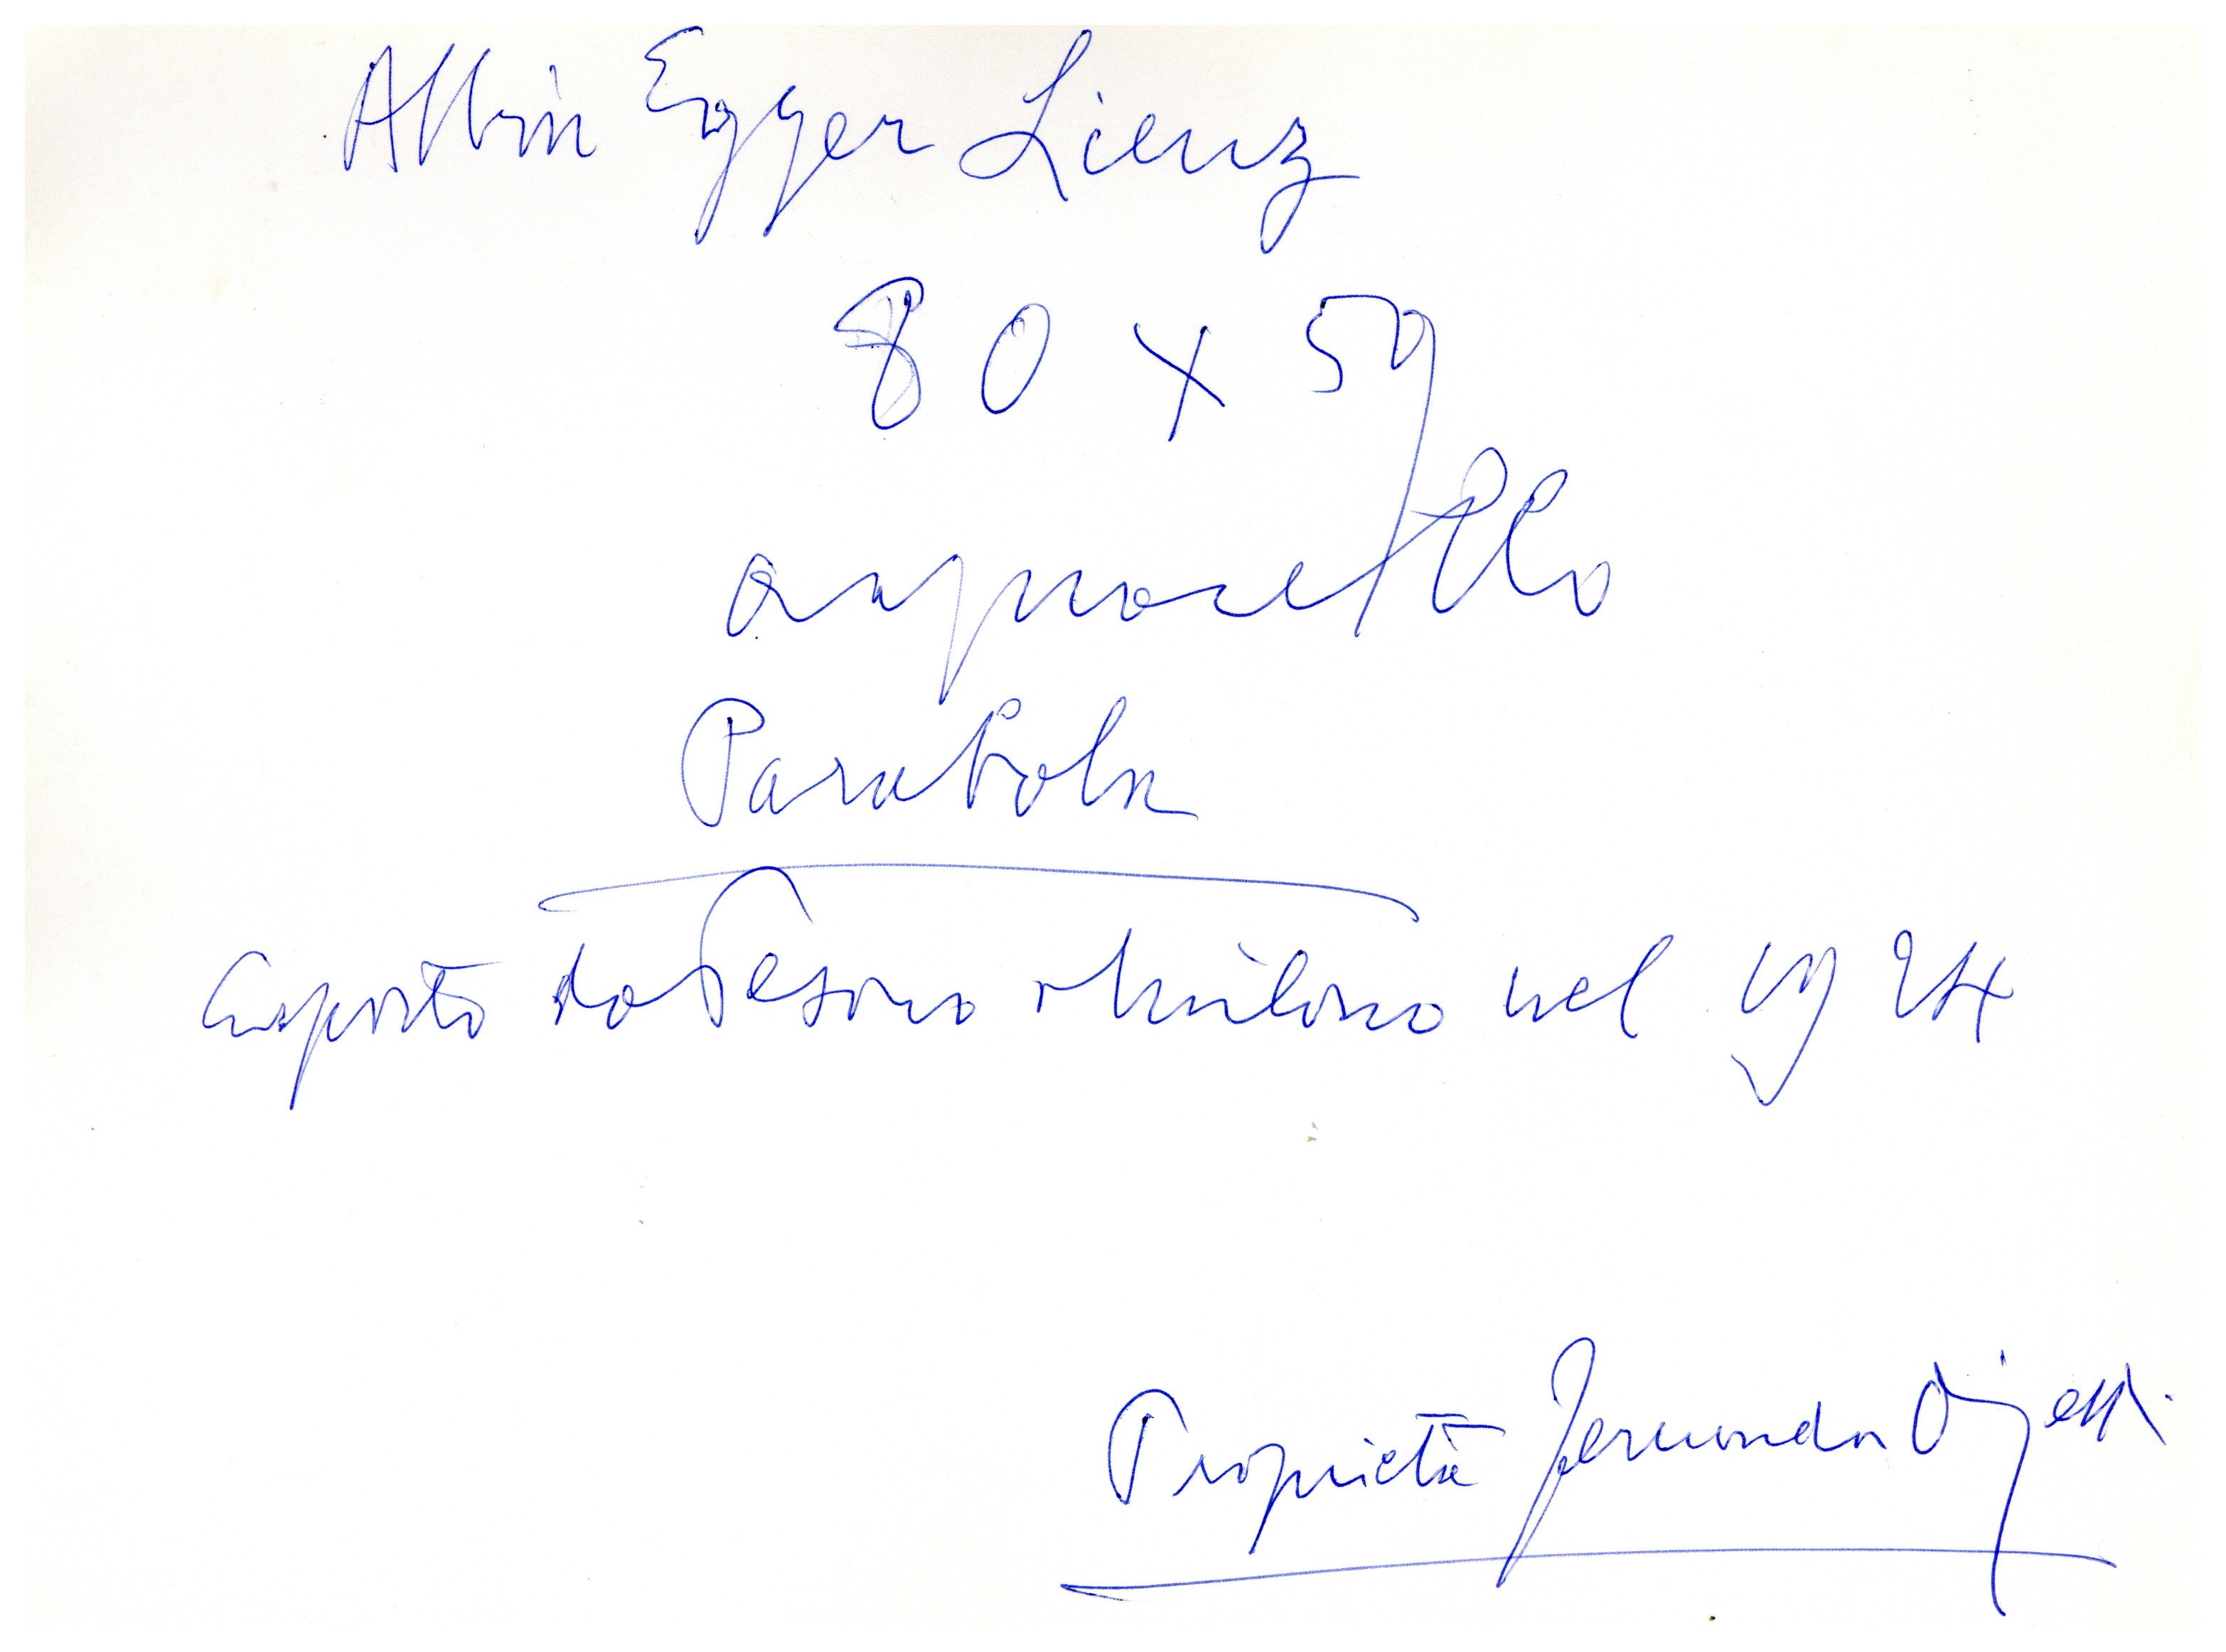 Albin Egger Lienz
80 x 59
acquarello
Parabola
Esposto da Pesaro Milano nel 1924
Proprietà Fernanda Ojetti